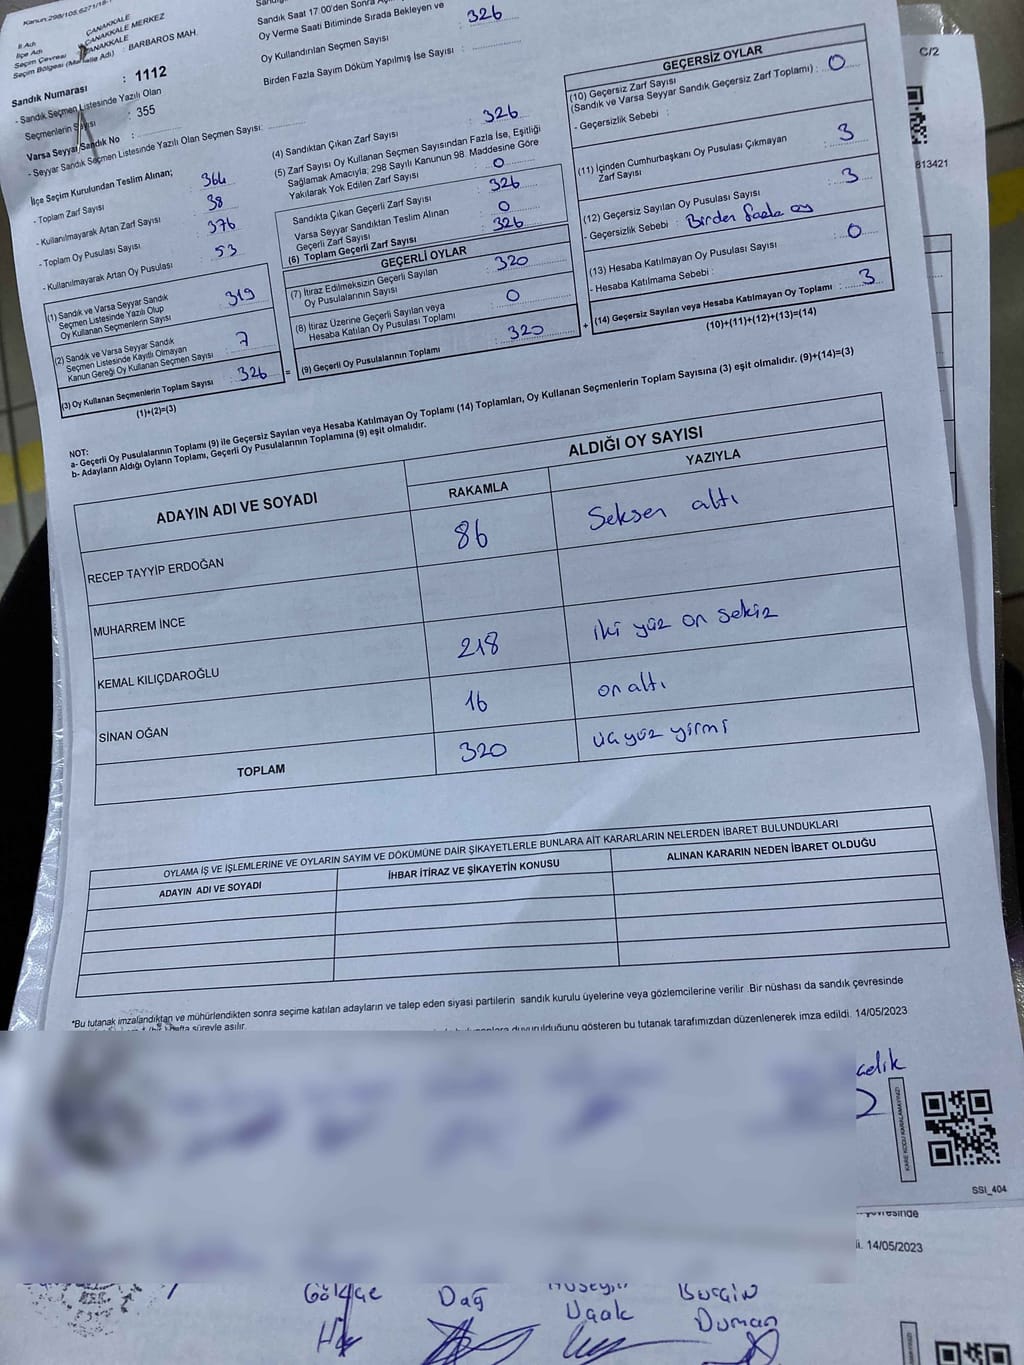 Kanun:298/105,6271/18-
İl Adı : ÇANAKKALE
İlçe Adı : ÇANAKKALE MERKEZ
Seçim Çevresi : ÇANAKKALE
Seçim Bölgesi (Mahalle Adı) : BARBAROS MAH.
Sandık Numarası : 1112
- Sandık Seçmen Listesinde Yazılı Olan
Seçmenlerin Sayısı : 355
Varsa Seyyar Sandık No :
- Seyyar Sandık Seçmen Listesinde Yazılı Olan Seçmen Sayısı:
İlçe Seçim Kurulundan Teslim Alınan;
- Toplam Zarf Sayısı 364
- Kullanılmayarak Artan Zarf Sayısı 38
- Toplam Oy Pusulası Sayısı 376
- Kullanılmayarak Artan Oy Pusulası 53
(1) Sandık ve Varsa Seyyar Sandık
Seçmen Listesinde Yazılı Olup
Oy Kullanan Seçmenlerin Sayısı 319
(2) Sandık ve Varsa Seyyar Sandık
Seçmen Listesinde Kayıtlı Olmayan
Kanun Gereği Oy Kullanan Seçmen Sayısı 7
(3) Oy Kullanan Seçmenlerin Toplam Sayısı 326 =
(1)+(2)=(3)
Sandık Saat 17.00'den Sonra
Oy Verme Saati Bitiminde Sırada Bekleyen ve
Oy Kullandırılan Seçmen Sayısı : 326
Birden Fazla Sayım Döküm Yapılmış İse Sayısı :
(4) Sandıktan Çıkan Zarf Sayısı 326
(5) Zarf Sayısı Oy Kullanan Seçmen Sayısından Fazla İse, Eşitliği
Sağlamak Amacıyla; 298 Sayılı Kanunun 98. Maddesine Göre
Yakılarak Yok Edilen Zarf Sayısı 0
Sandıkta Çıkan Geçerli Zarf Sayısı 326
Varsa Seyyar Sandıktan Teslim Alınan
Geçerli Zarf Sayısı 0
(6) Toplam Geçerli Zarf Sayısı 326
GEÇERLİ OYLAR
(7) İtiraz Edilmeksizin Geçerli Sayılan
Oy Pusulalarının Sayısı 320
(8) İtiraz Üzerine Geçerli Sayılan veya
Hesaba Katılan Oy Pusulası Toplamı 0
(9) Geçerli Oy Pusulalarının Toplamı 320 +
GEÇERSİZ OYLAR
(10) Geçersiz Zarf Sayısı
(Sandık ve Varsa Seyyar Sandık Geçersiz Zarf Toplamı) : 0
- Geçersizlik Sebebi :
(11) İçinden Cumhurbaşkanı Oy Pusulası Çıkmayan
Zarf Sayısı 3
(12) Geçersiz Sayılan Oy Pusulası Sayısı 3
- Geçersizlik Sebebi : Birden fazla oy
(13) Hesaba Katılmayan Oy Pusulası Sayısı 0
- Hesaba Katılmama Sebebi :
(14) Geçersiz Sayılan veya Hesaba Katılmayan Oy Toplamı : 3
(10)+(11)+(12)+(13)=(14)
C/2
813421
NOT:
a- Geçerli Oy Pusulalarının Toplamı (9) ile Geçersiz Sayılan veya Hesaba Katılmayan Oy Toplamı (14) Toplamları, Oy Kullanan Seçmenlerin Toplam Sayısına (3) eşit olmalıdır. (9)+(14)=(3)
b- Adayların Aldığı Oyların Toplamı, Geçerli Oy Pusulalarının Toplamına (9) eşit olmalıdır.
ADAYIN ADI VE SOYADI ALDIĞI OY SAYISI
RAKAMLA YAZIYLA
RECEP TAYYİP ERDOĞAN 86 Seksen altı
MUHARREM İNCE
KEMAL KILIÇDAROĞLU 218 iki yüz on sekiz
SİNAN OĞAN 16 on altı
TOPLAM 320 üç yüz yirmi
OYLAMA İŞ VE İŞLEMLERİNE VE OYLARIN SAYIM VE DÖKÜMÜNE DAİR ŞİKAYETLERLE BUNLARA AİT KARARLARIN NELERDEN İBARET BULUNDUKLARI
ADAYIN ADI VE SOYADI İHBAR İTİRAZ VE ŞİKAYETİN KONUSU ALINAN KARARIN NEDEN İBARET OLDUĞU
*Bu tutanak imzalandıktan ve mühürlendikten sonra seçime katılan adayların ve talep eden siyasi partilerin sandık kurulu üyelerine veya gözlemcilerine verilir .Bir nüshası da sandık çevresinde
hafta süreyle asılır.
duyurulduğunu gösteren bu tutanak tarafımızdan düzenlenerek imza edildi. 14/05/2023
çelik
KARE KODU KARALAMAYINIZ!
SSI_404
çevresinde
li. 14/05/2023
Gökçe Dağ Hüseyin Uçak Burçin Duman